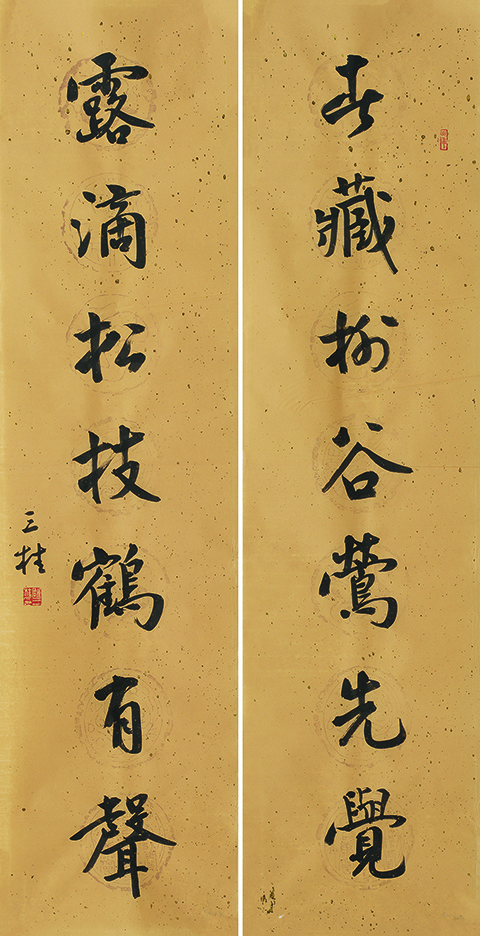 春藏柳谷鶯先覺
露滴松枝鶴有聲
三桂